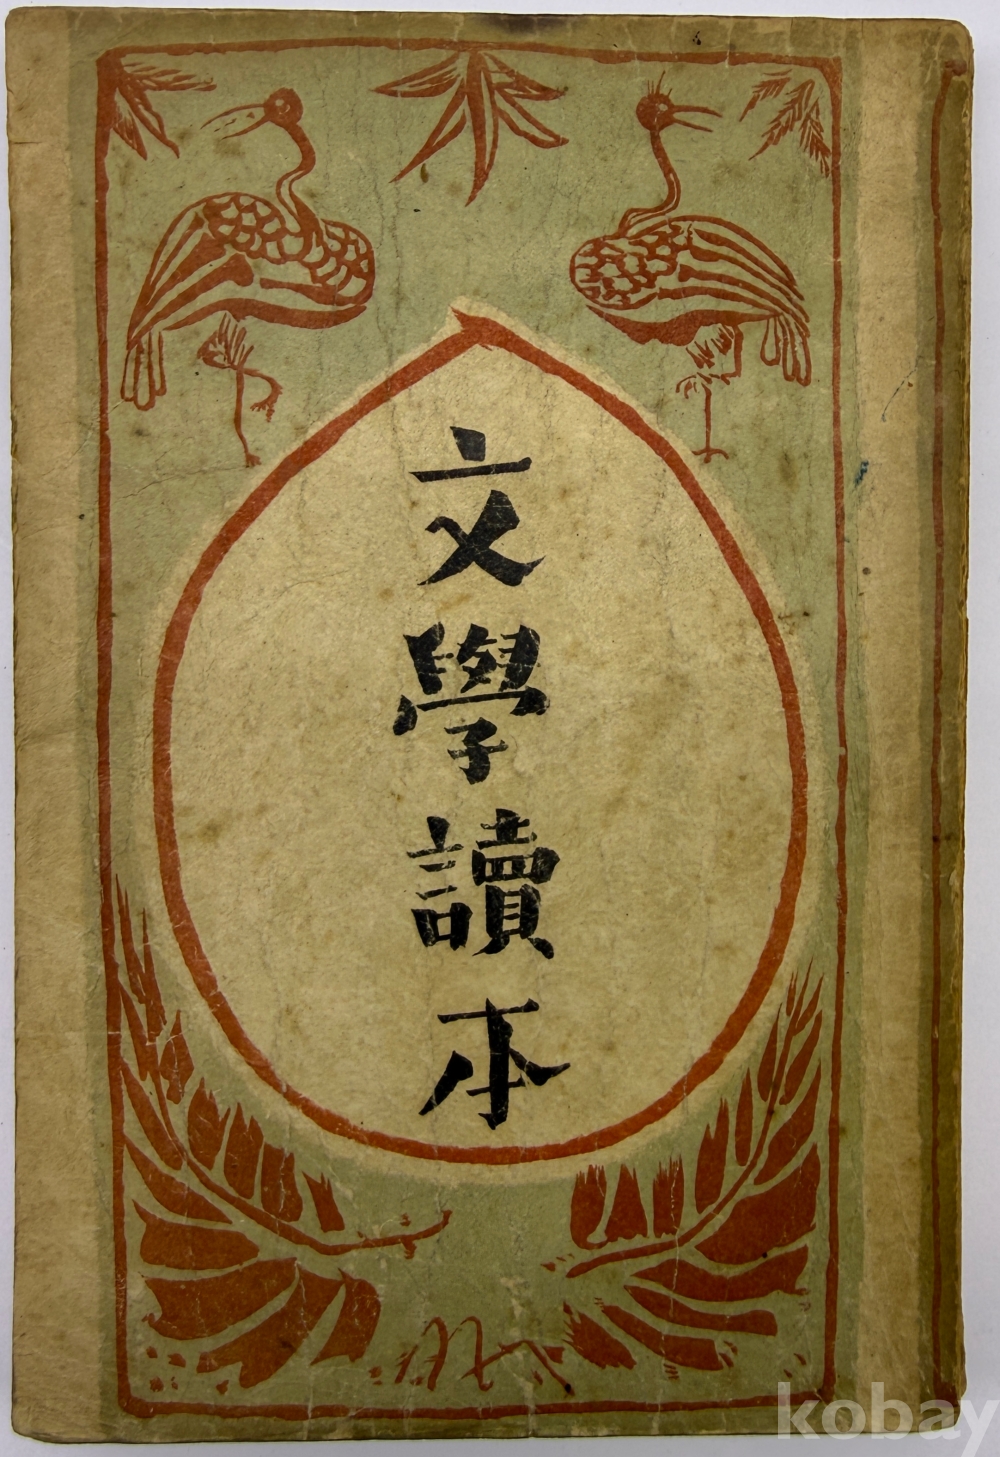 文學讀本
kobay